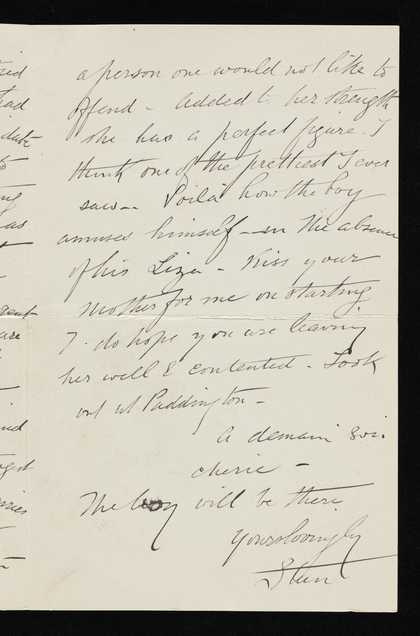 a person one would not like to
offend - Added to her strength
she has a perfect figure. I
think one of the prettiest I ever
saw - Voilà how the boy
amuses himself - in the absence
of his Liza - Kiss your
mother for me on starting
I do hope you are leaving
her well & contented - Look
out at Paddington -
a demain soir
cherie -
The boy will be there
Yours lovingly